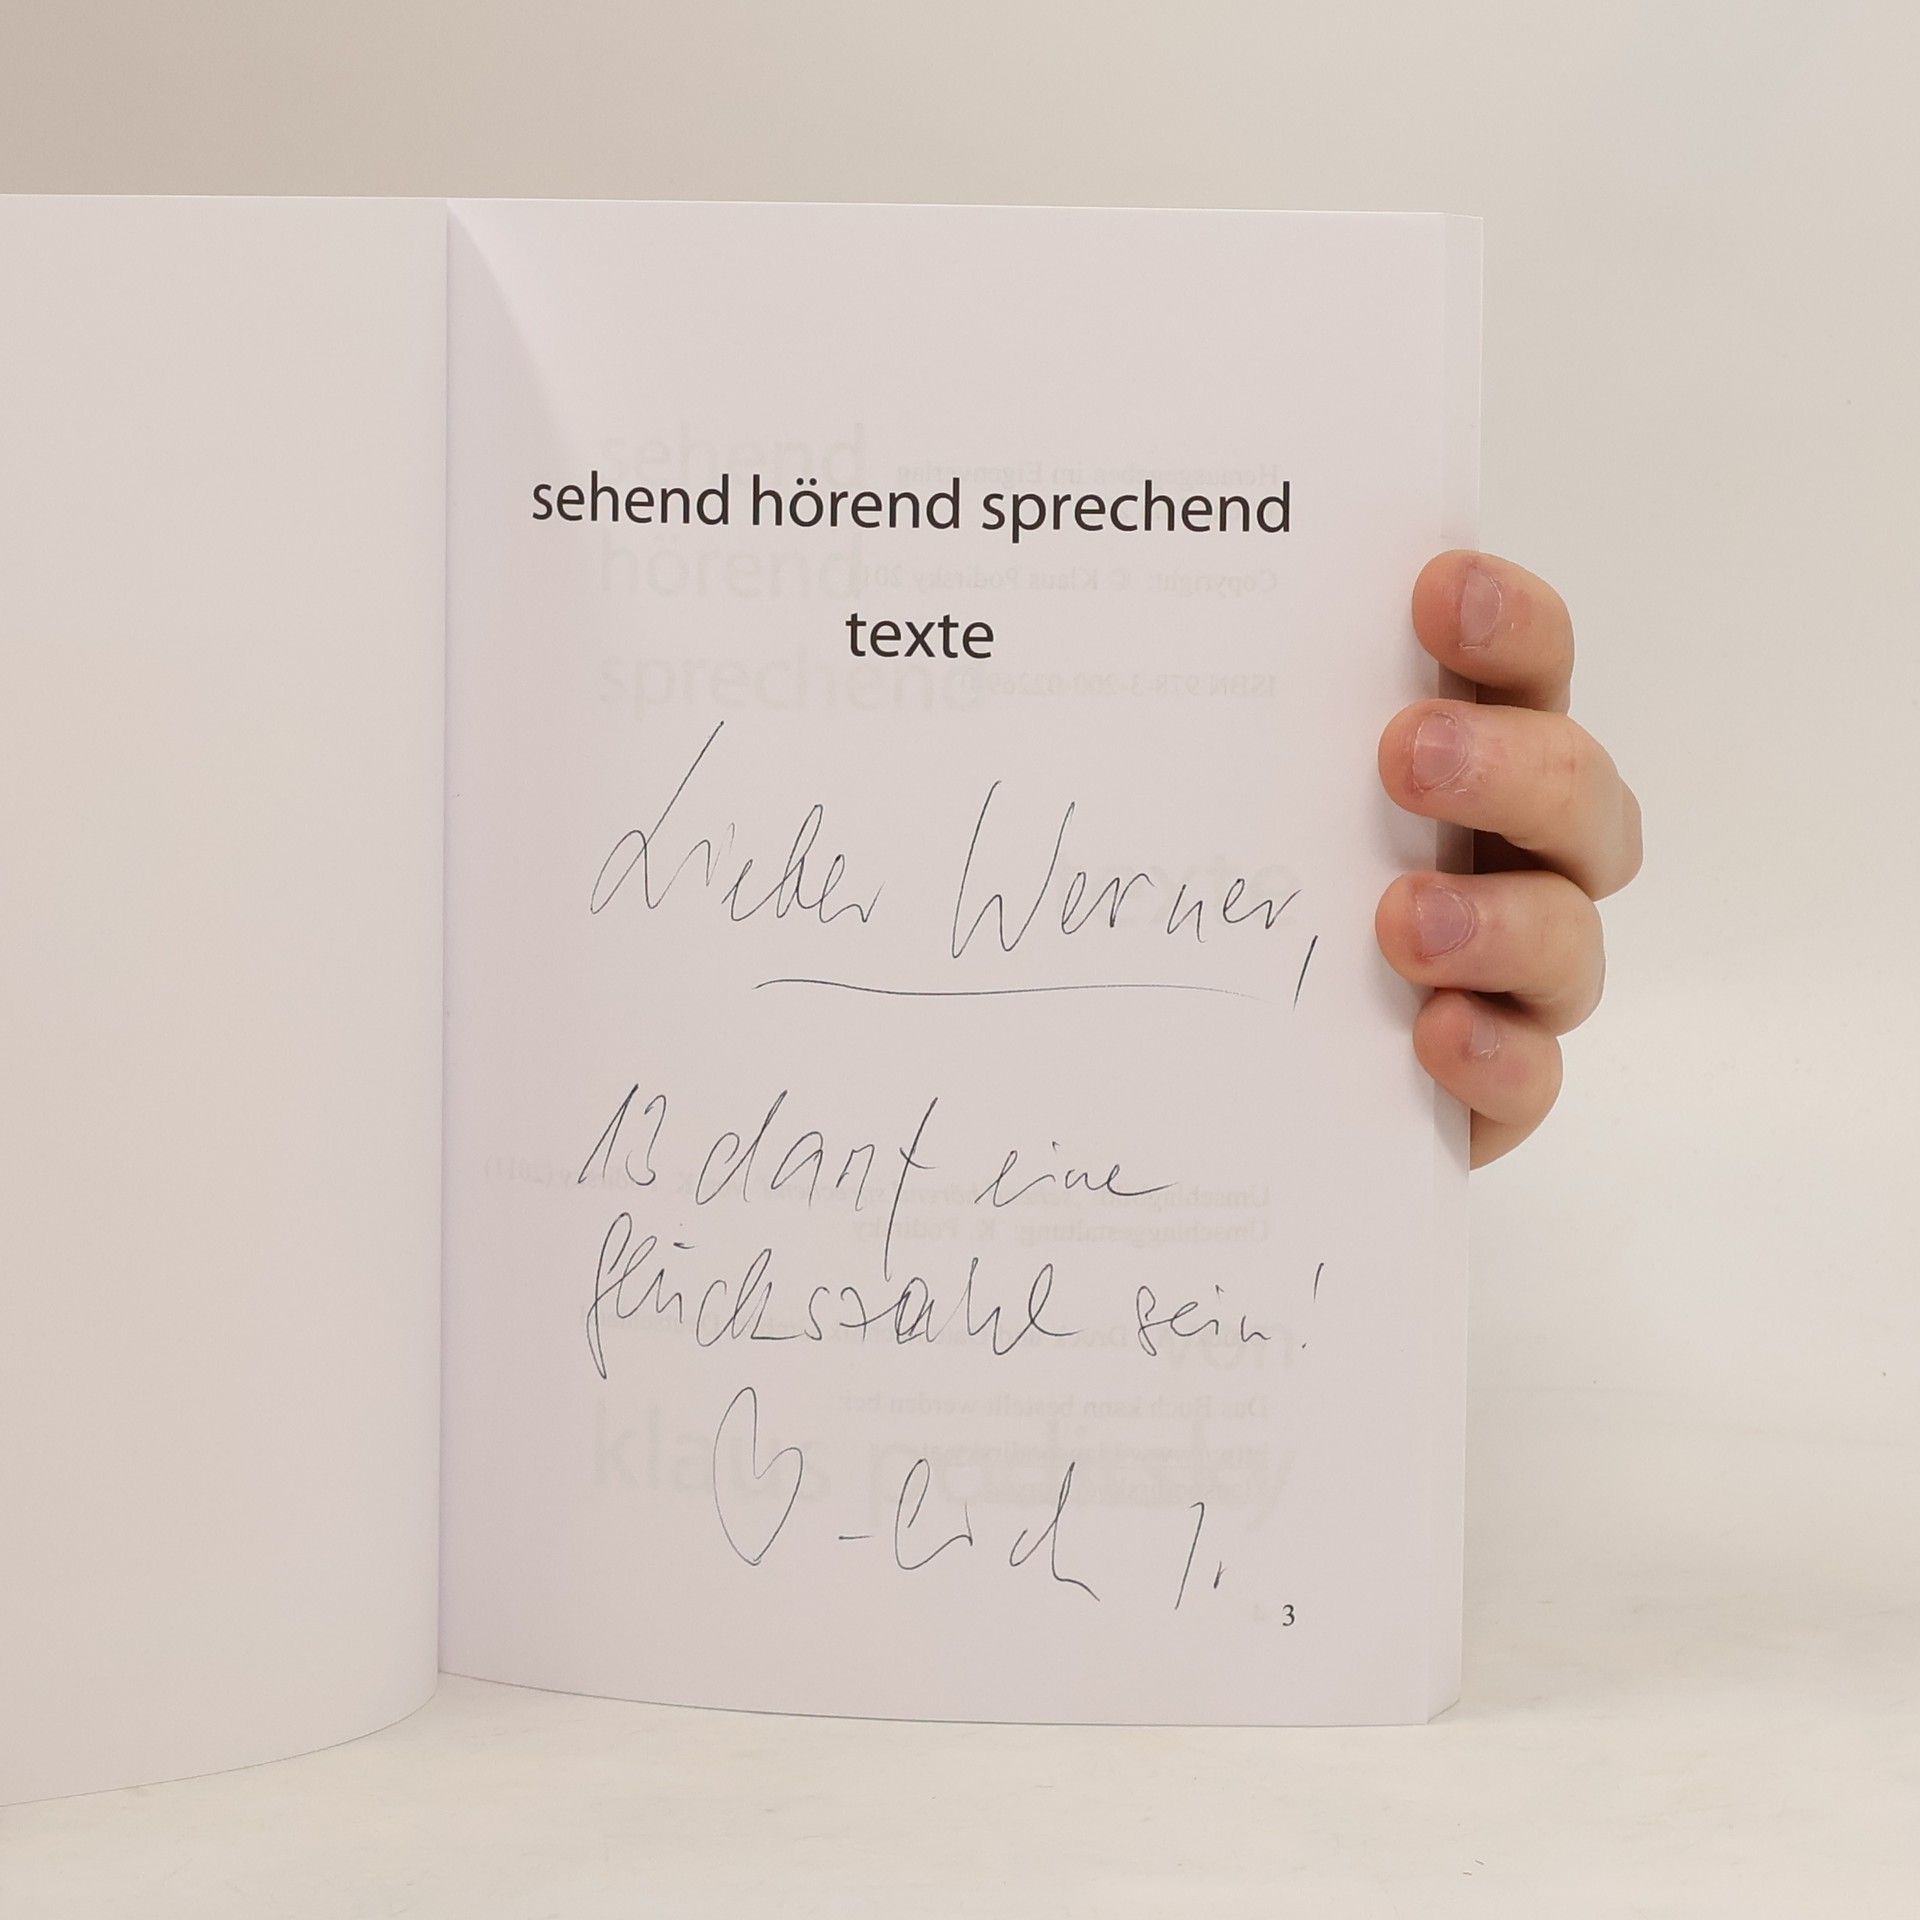 sehend hörend sprechend
texte
Lieber Werner,
13 darf eine
Glückszahl sein!
♡-lich
3